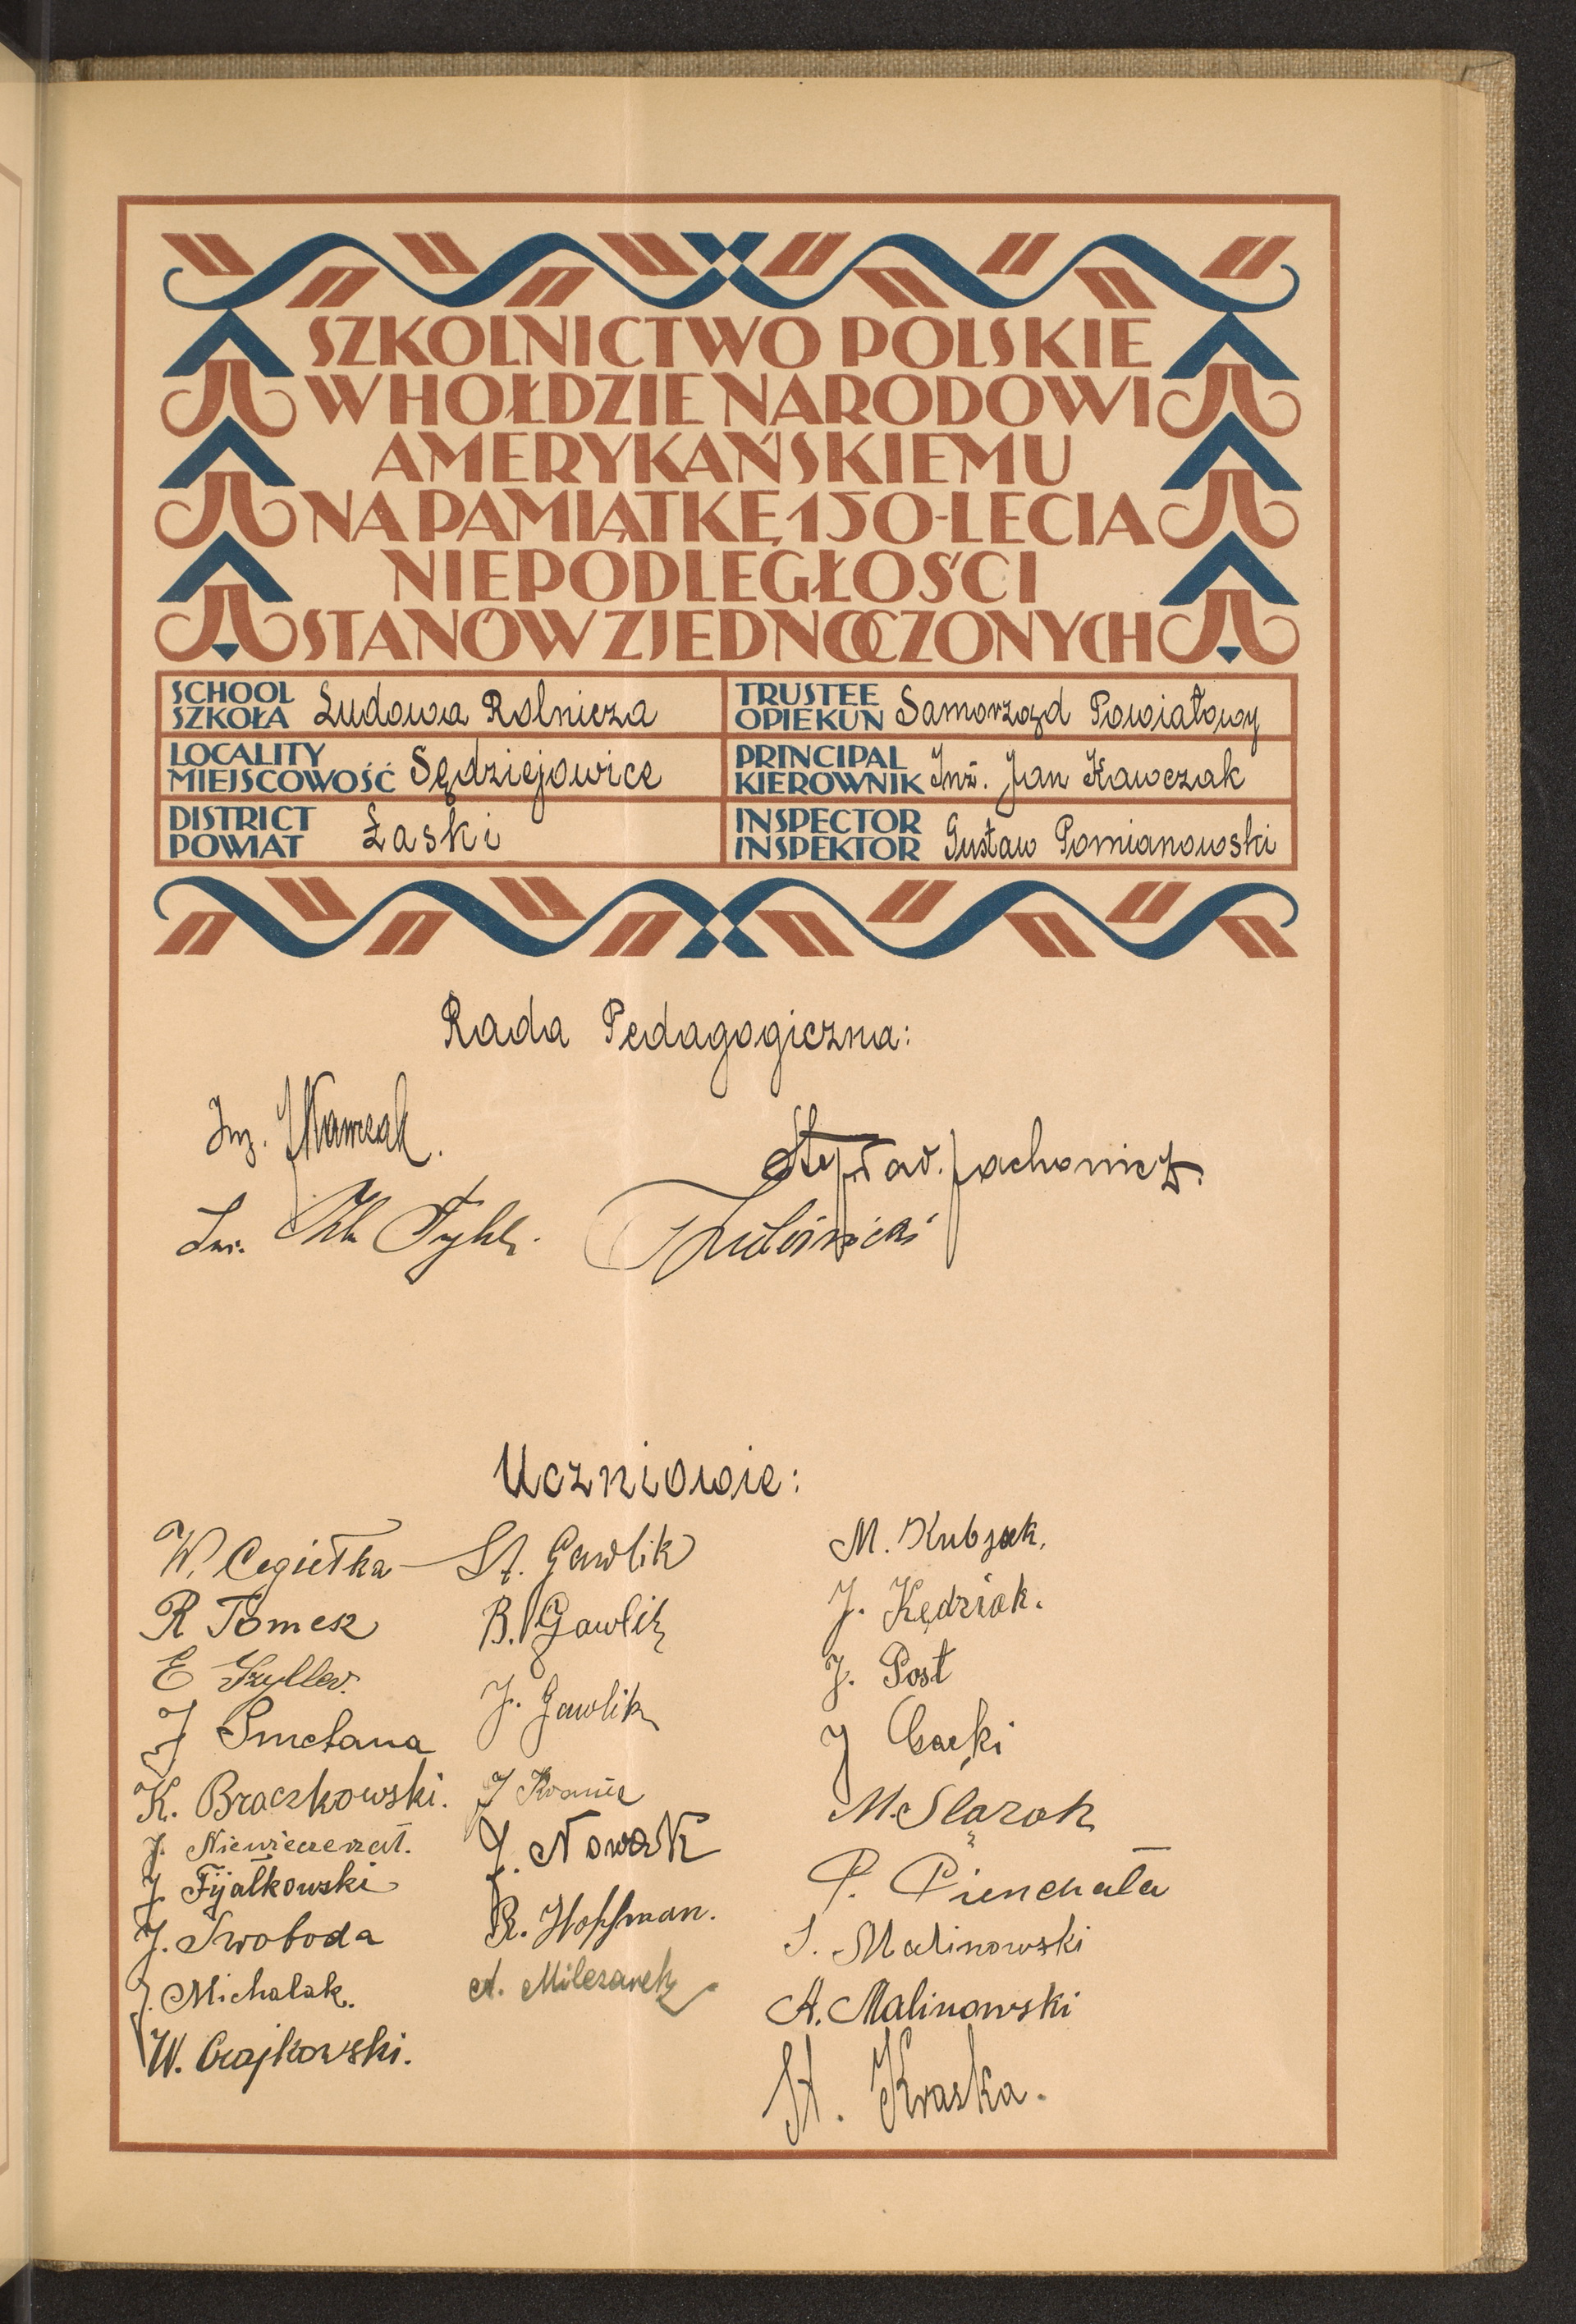 SZKOLNICTWO POLSKIE
W HOŁDZIE NARODOWI
AMERYKAŃSKIEMU
NA PAMIĄTKĘ 150-LECIA
NIEPODLEGŁOŚCI
STANÓW ZJEDNOCZONYCH
SCHOOL
SZKOŁA Ludowa Rolnicza
TRUSTEE
OPIEKUN Samorząd Powiatowy
LOCALITY
MIEJSCOWOŚĆ Sędziejowice
PRINCIPAL
KIEROWNIK Inż. Jan Kawczak
DISTRICT
POWIAT Łaski
INSPECTOR
INSPEKTOR Gustaw Pomianowski
Rada Pedagogiczna:
Inż. J Kawczak.
Uczniowie:
W. Cegiełka
R Tomek
E Szyller.
J Smetana
K. Braczkowski.
J.
J Fijałkowski
J. Swoboda
J. Michalak.
W. Czajkowski.
St. Gawlik
B. Gawlik
J. Gawlik
J
J. Nowak
R. Hoffman.
A. Milczarek
M. Kubsak.
J. Kędziak.
J. Post
J Gacki
M. Ślązak
P. Pienchała
S. Malinowski
A. Malinowski
St. Kraska.